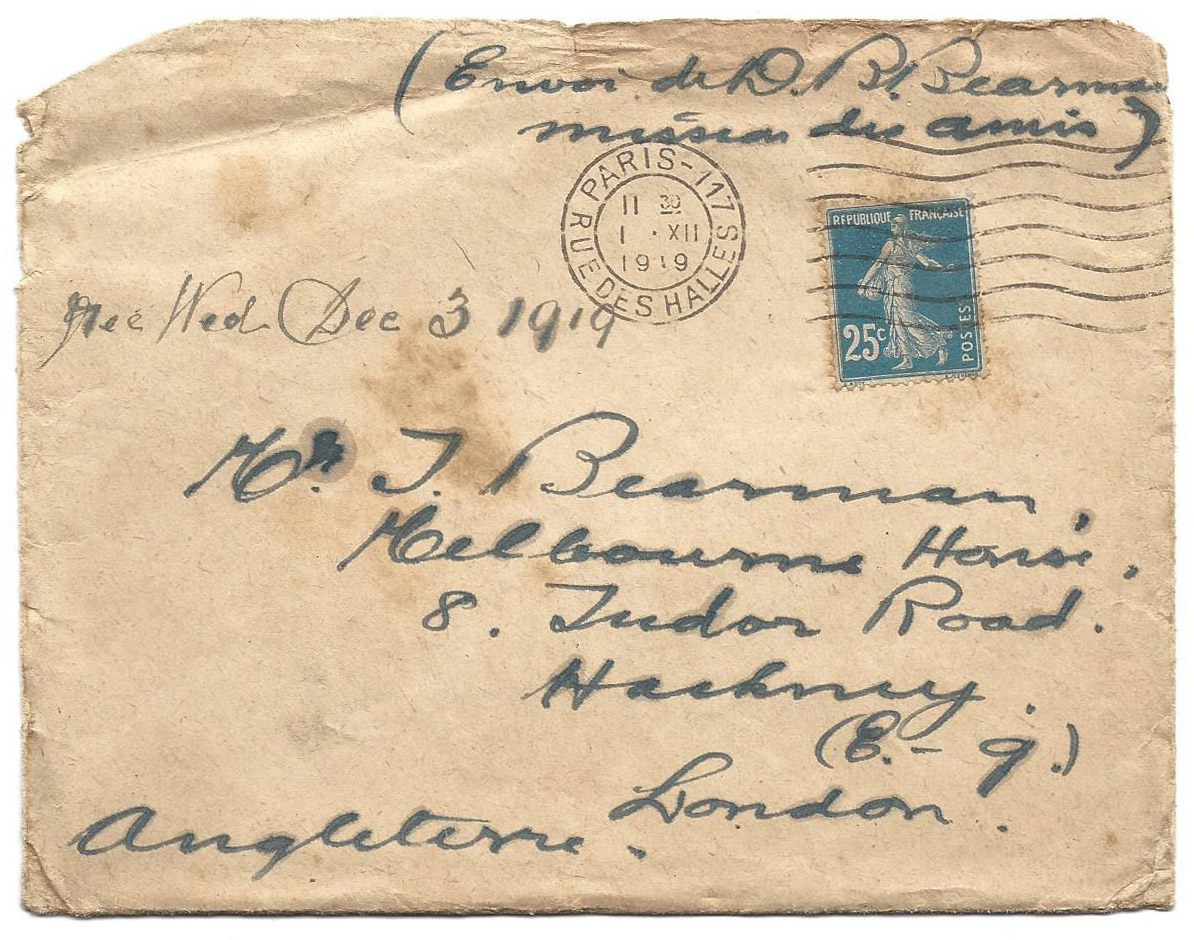 (Envoi de D. R. Bearman
mission des amis)
PARIS-117
11 30
1 · XII
1919
RUE DES HALLES
REPUBLIQUE FRANÇAISE
25c
POSTES
Rec Wed Dec 3 1919
Mr. T. Bearman,
Melbourne House,
8. Tudor Road.
Hackney.
(E. - 9.)
London.
Angleterre.